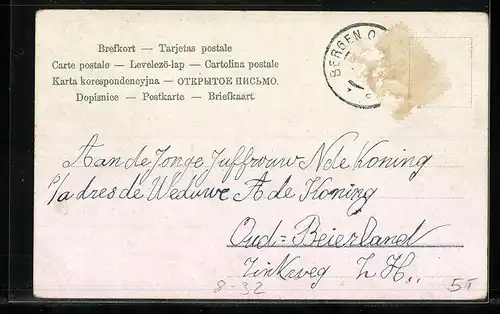 Brefkort — Tarjetas postale
Carte postale — Levelező-lap — Cartolina postale
Karta korespondencyjna — ОТКРЫТОЕ ПИСЬМО.
Dopisnice — Postkarte — Briefkaart.
BERGEN O
Aan de Jonge Juffrouw N de Koning
p/adres de Weduwe A de Koning
Oud=Beierland
Zinkweg Z H.,
8-32